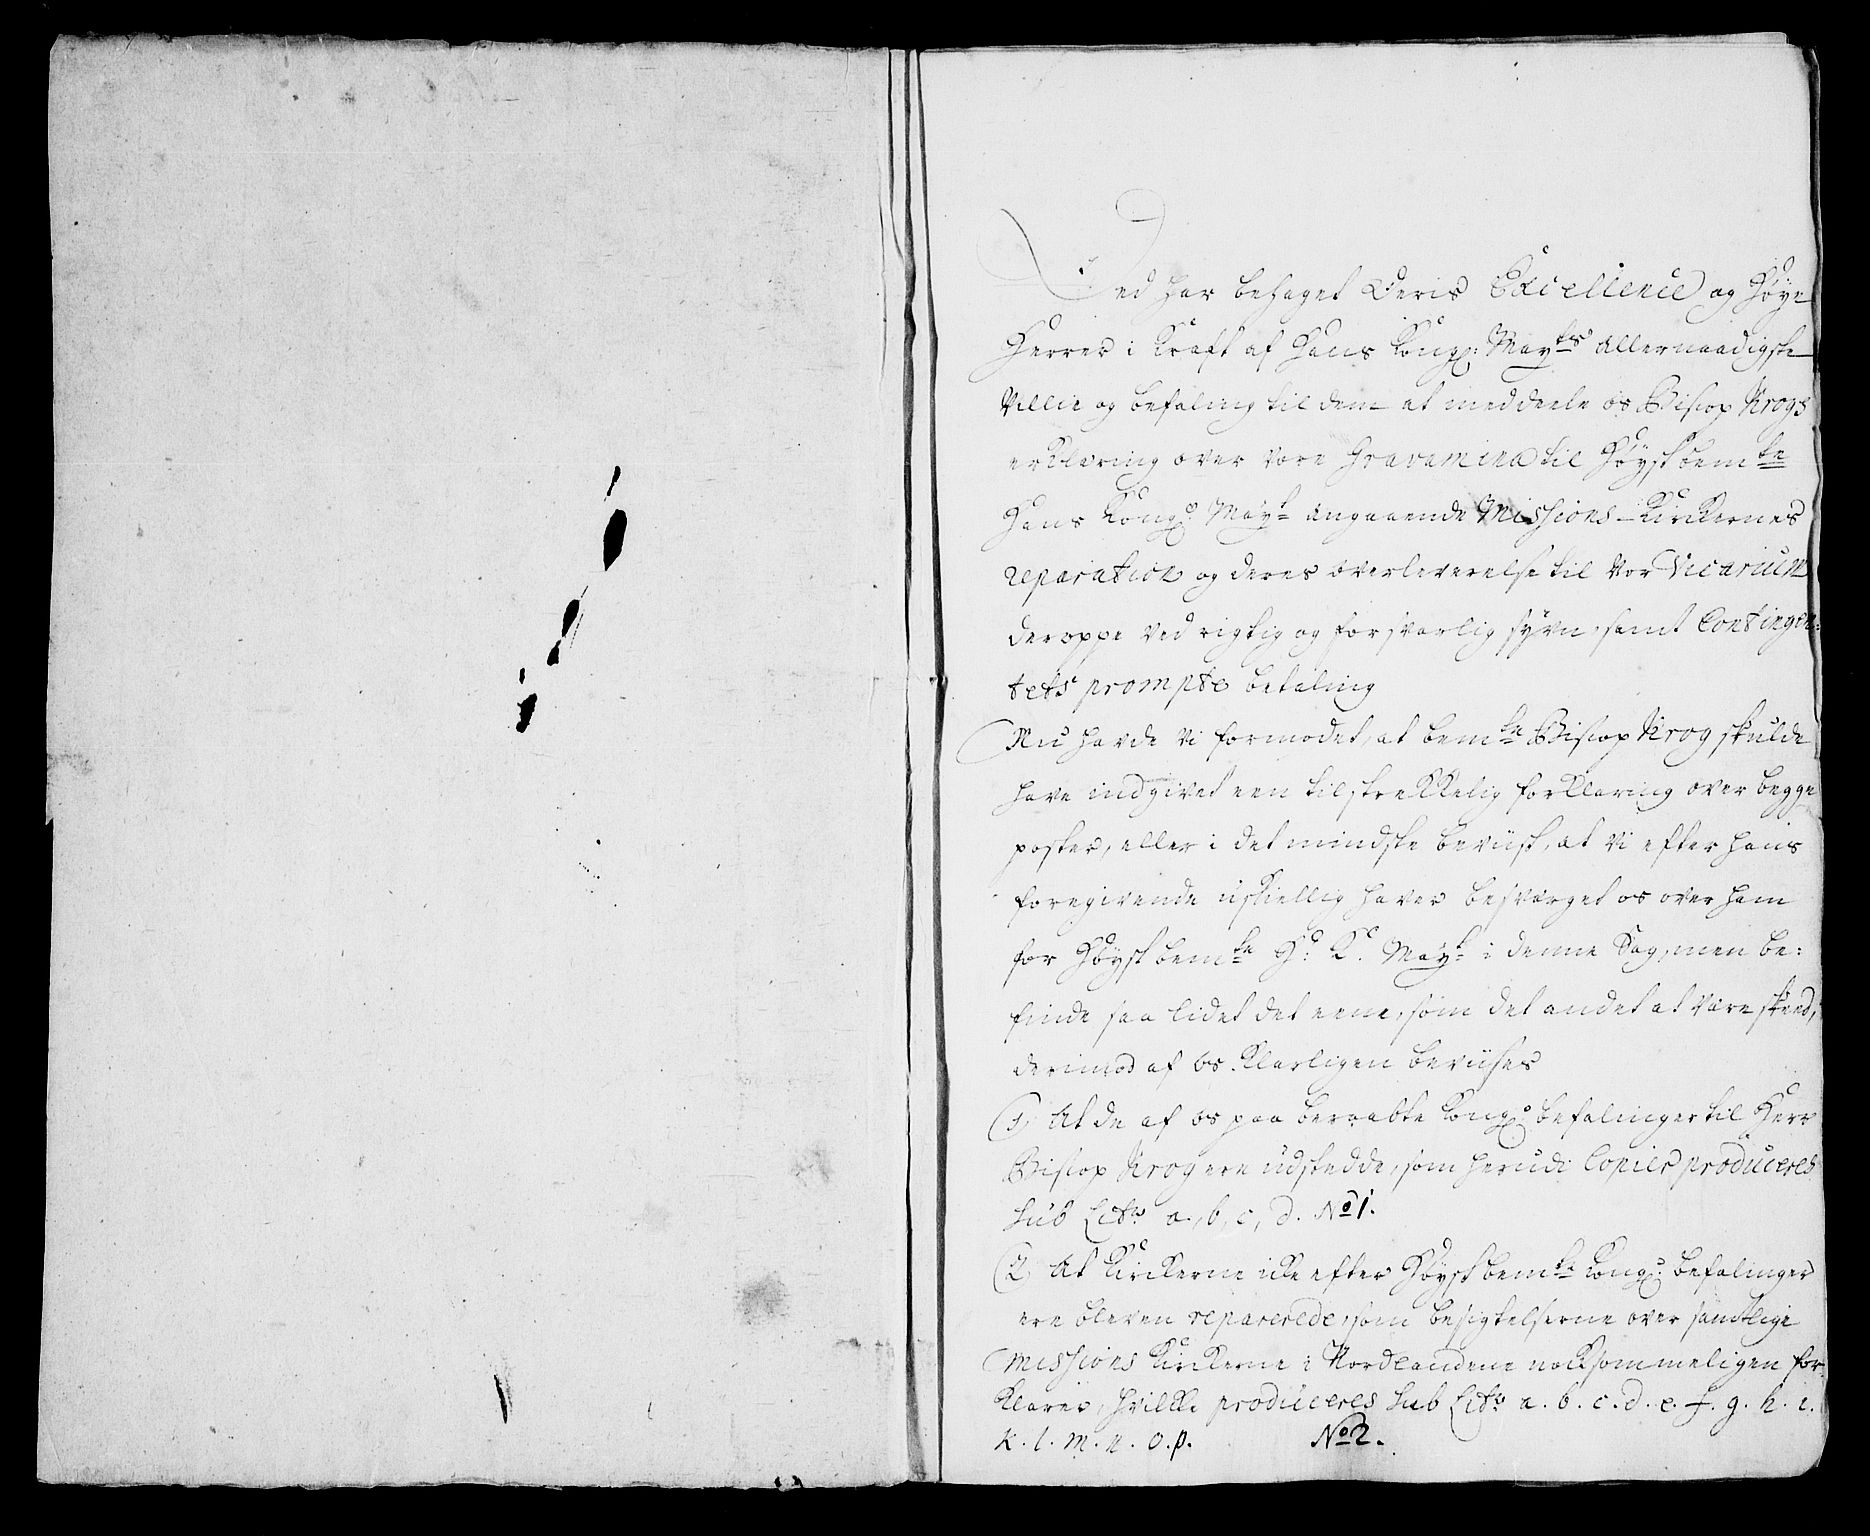 Ded har behaget Deris Excellence og Høye
Herrer i Kraft af Hans Kongl: Mayts allernaadigste
Villie og befaling til dem at meddeele os Biscop Krogs
erklæring over vore Gravamina til Høystbemte
Hans Kongl: Mayt angaaende Missions-Kirckernes
reparation og deres overleverelse til vor Vicarium
deroppe ved rigtig og forsvarlig syvn, samt Contingen:
tets prompte betaling
Nu havde vi formodet, at bemte Biscop Krog skulde
have indgivet een tilstrekkelig forklaring over begge
poster, eller i det mindste beviist, at vi efter hans
foregivende uskiellig haver besværget os over ham
for Høystbemte H: K. Mayt i denne Sag, men be:
finde saa lidet det eene, som det andet at være skeed,
derimod af os klarligen beviises
1, At de af os paa beraabte Kongl: befalinger til Herr
Biscop Krog ere udstedde, som herudi Copier produceres
sub Litr: a, b, c, d. No 1.
2, At Kirckerne icke efter Høystbemte Kongl: befalinger
ere bleven reparerede, som besigtelserne over samtlige
Missions Kirckerne i Nordlandene nocksommeligen for-
klarer, hvilcke produceres sub Litr: a. b. c. d. e. f. g. h. i.
k. l. m. n. o. p. No 2.